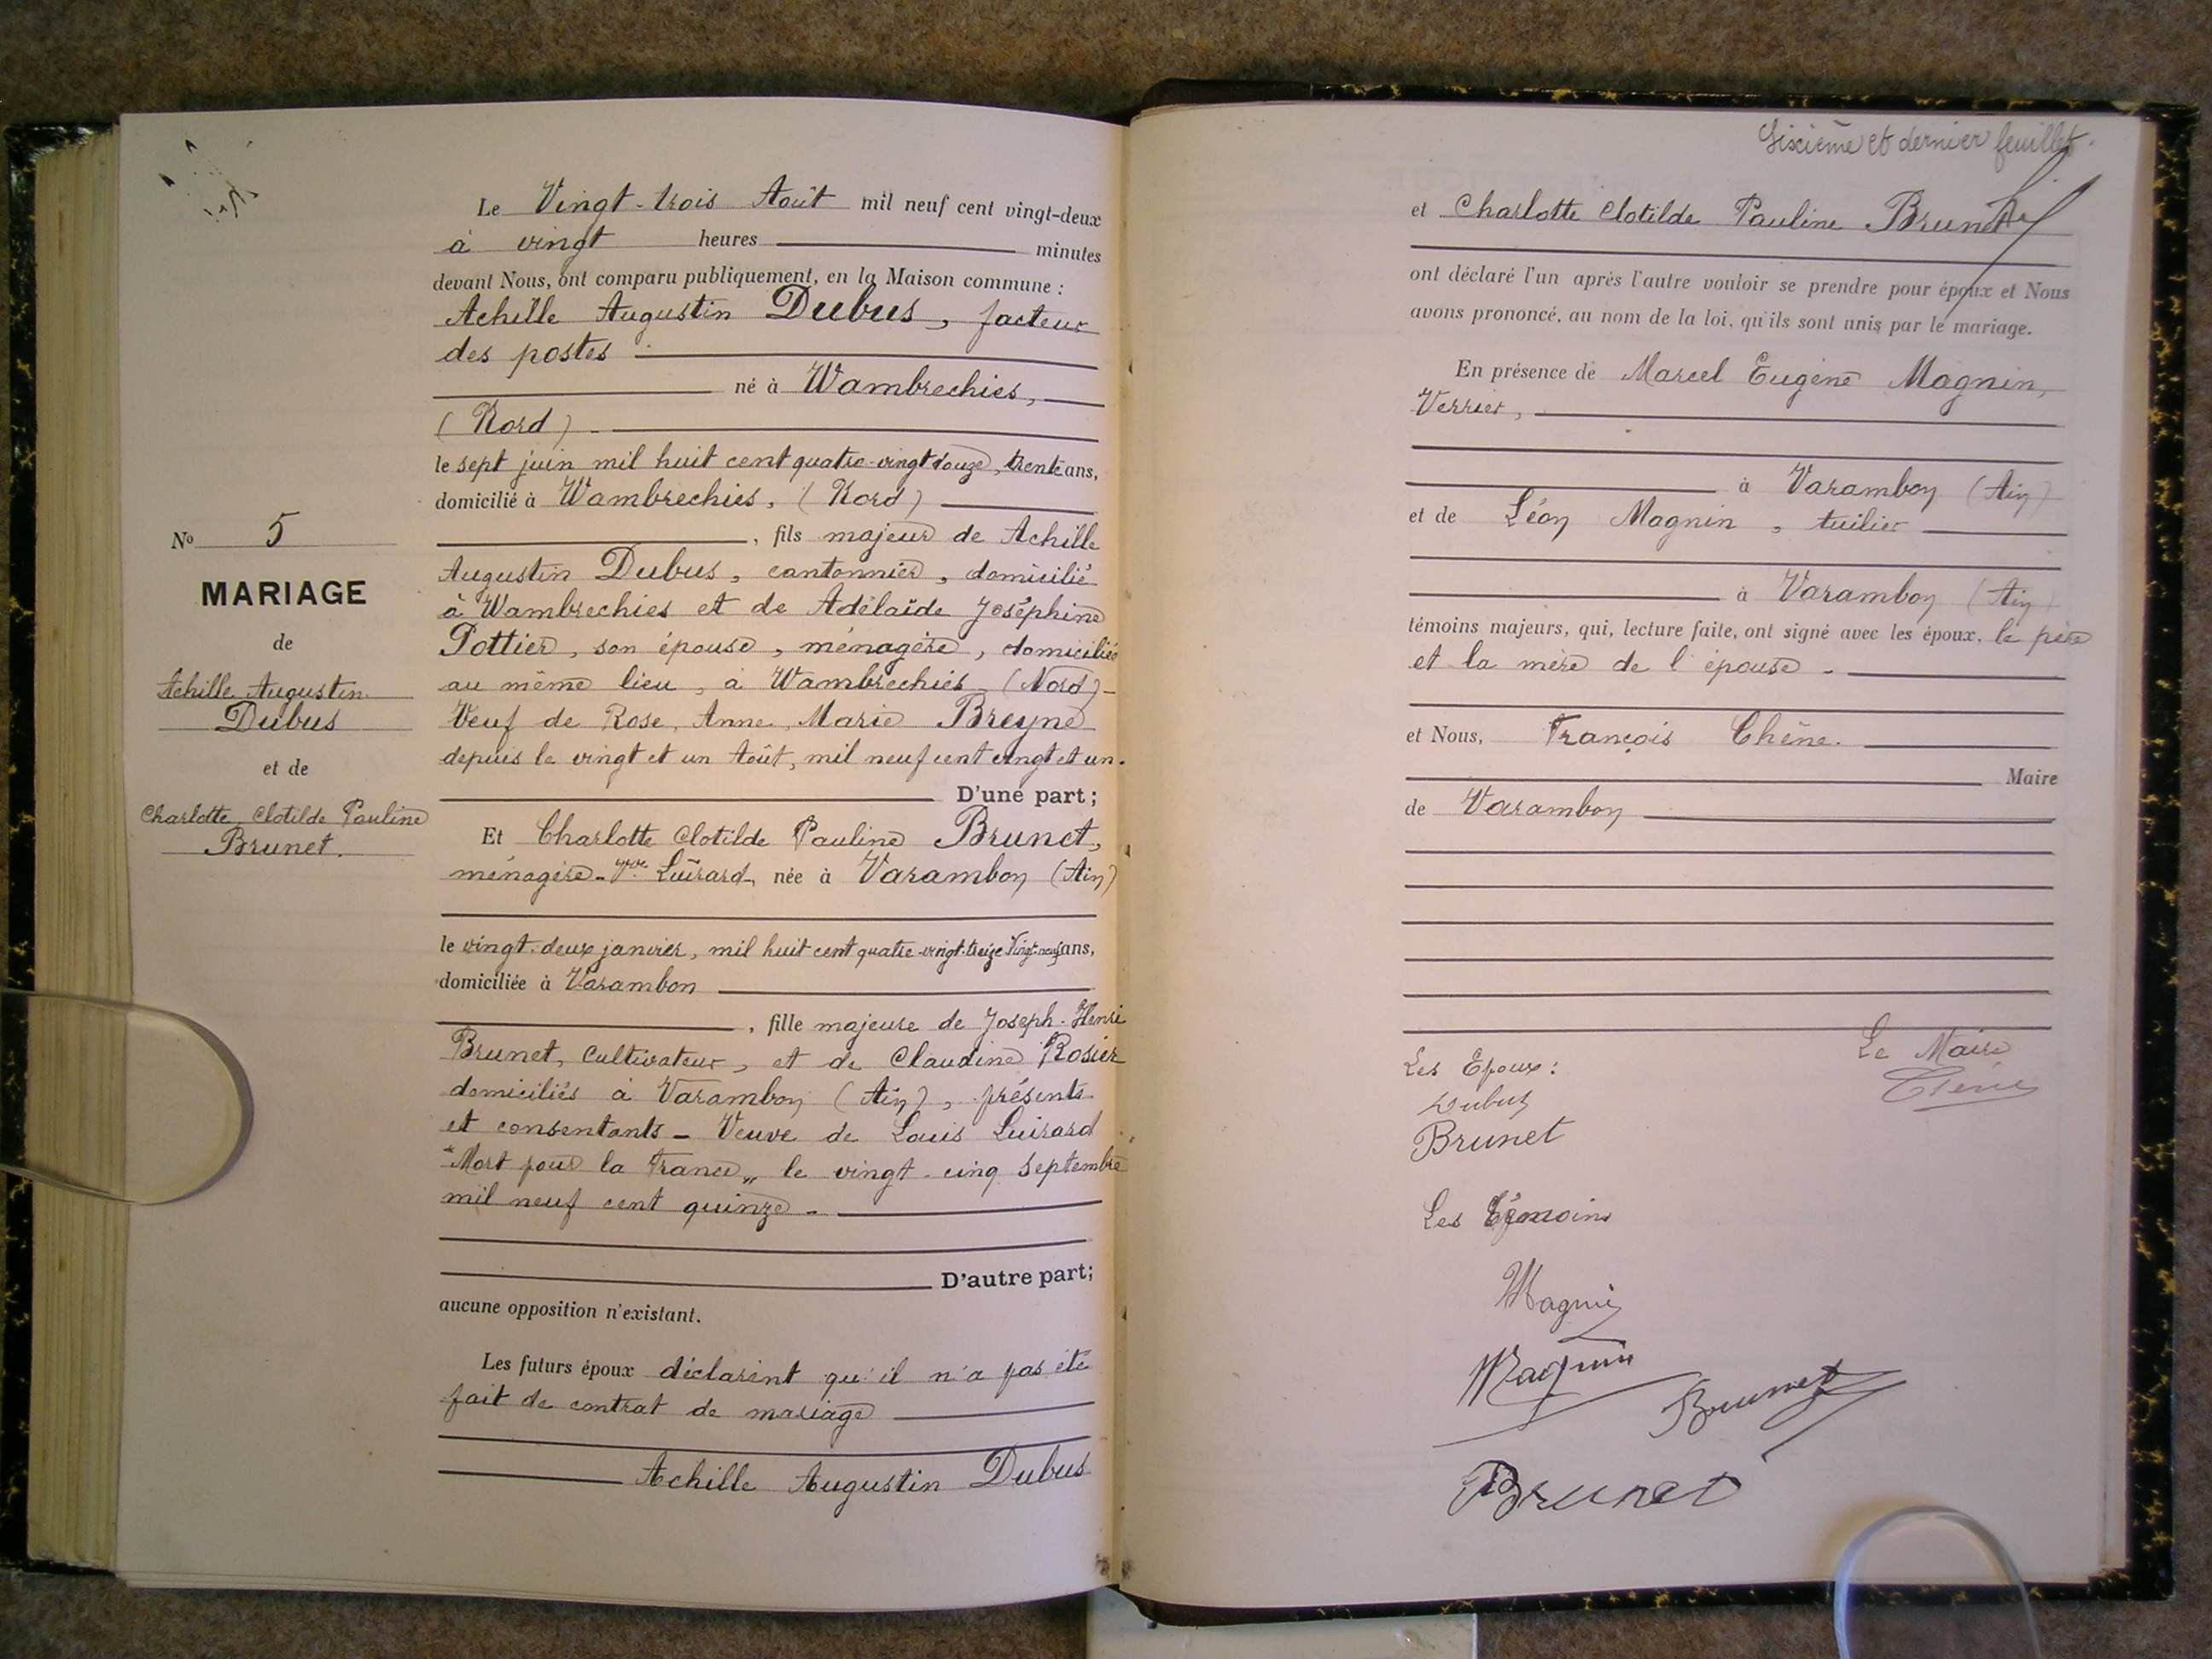 Le Vingt-trois Août mil neuf cent vingt-deux
à vingt heures minutes
devant Nous, ont comparu publiquement, en la Maison commune :
Achille Augustin Dubus, facteur
des postes
né à Wambrechies,
(Nord)
le sept juin mil huit cent quatre-vingt douze, trente ans,
domicilié à Wambrechies, (Nord)
, fils majeur de Achille
Augustin Dubus, cantonnier, domicilié
à Wambrechies et de Adélaïde Joséphine
Pottier, son épouse, ménagère, domiciliée
au même lieu, à Wambrechies (Nord) -
Veuf de Rose, Anne, Marie Breyne
depuis le vingt et un Août, mil neuf cent vingt et un.
D'une part ;
Et Charlotte Clotilde Pauline Brunet,
ménagère - Vve Luirard, née à Varambon (Ain)
le vingt-deux janvier, mil huit cent quatre-vingt-treize Vingt-neuf ans,
domiciliée à Varambon
, fille majeure de Joseph-Henri
Brunet, Cultivateur, et de Claudine Rosier
domiciliés à Varambon (Ain), présents
et consentants - Veuve de Louis Luirard
"Mort pour la France" le vingt-cinq Septembre
mil neuf cent quinze -
D'autre part;
aucune opposition n'existant.
Les futurs époux déclarent qu'il n'a pas été
fait de contrat de mariage
Achille Augustin Dubus
No 5
MARIAGE
de
Achille Augustin
Dubus
et de
Charlotte, Clotilde Pauline
Brunet.
Sixième et dernier feuillet.
et Charlotte Clotilde Pauline Brunet
ont déclaré l'un après l'autre vouloir se prendre pour époux et Nous
avons prononcé, au nom de la loi, qu'ils sont unis par le mariage.
En présence de Marcel Eugène Magnin,
Verrier,
à Varambon (Ain)
et de Léon Magnin, tuilier
à Varambon (Ain)
témoins majeurs, qui, lecture faite, ont signé avec les époux, le père
et la mère de l'épouse -
et Nous, François Chêne.
Maire
de Varambon
Les Epoux :
Dubus
Brunet
Le Maire
Chêne
Les Témoins
Magnin
Magnin
Brunet
Brunet